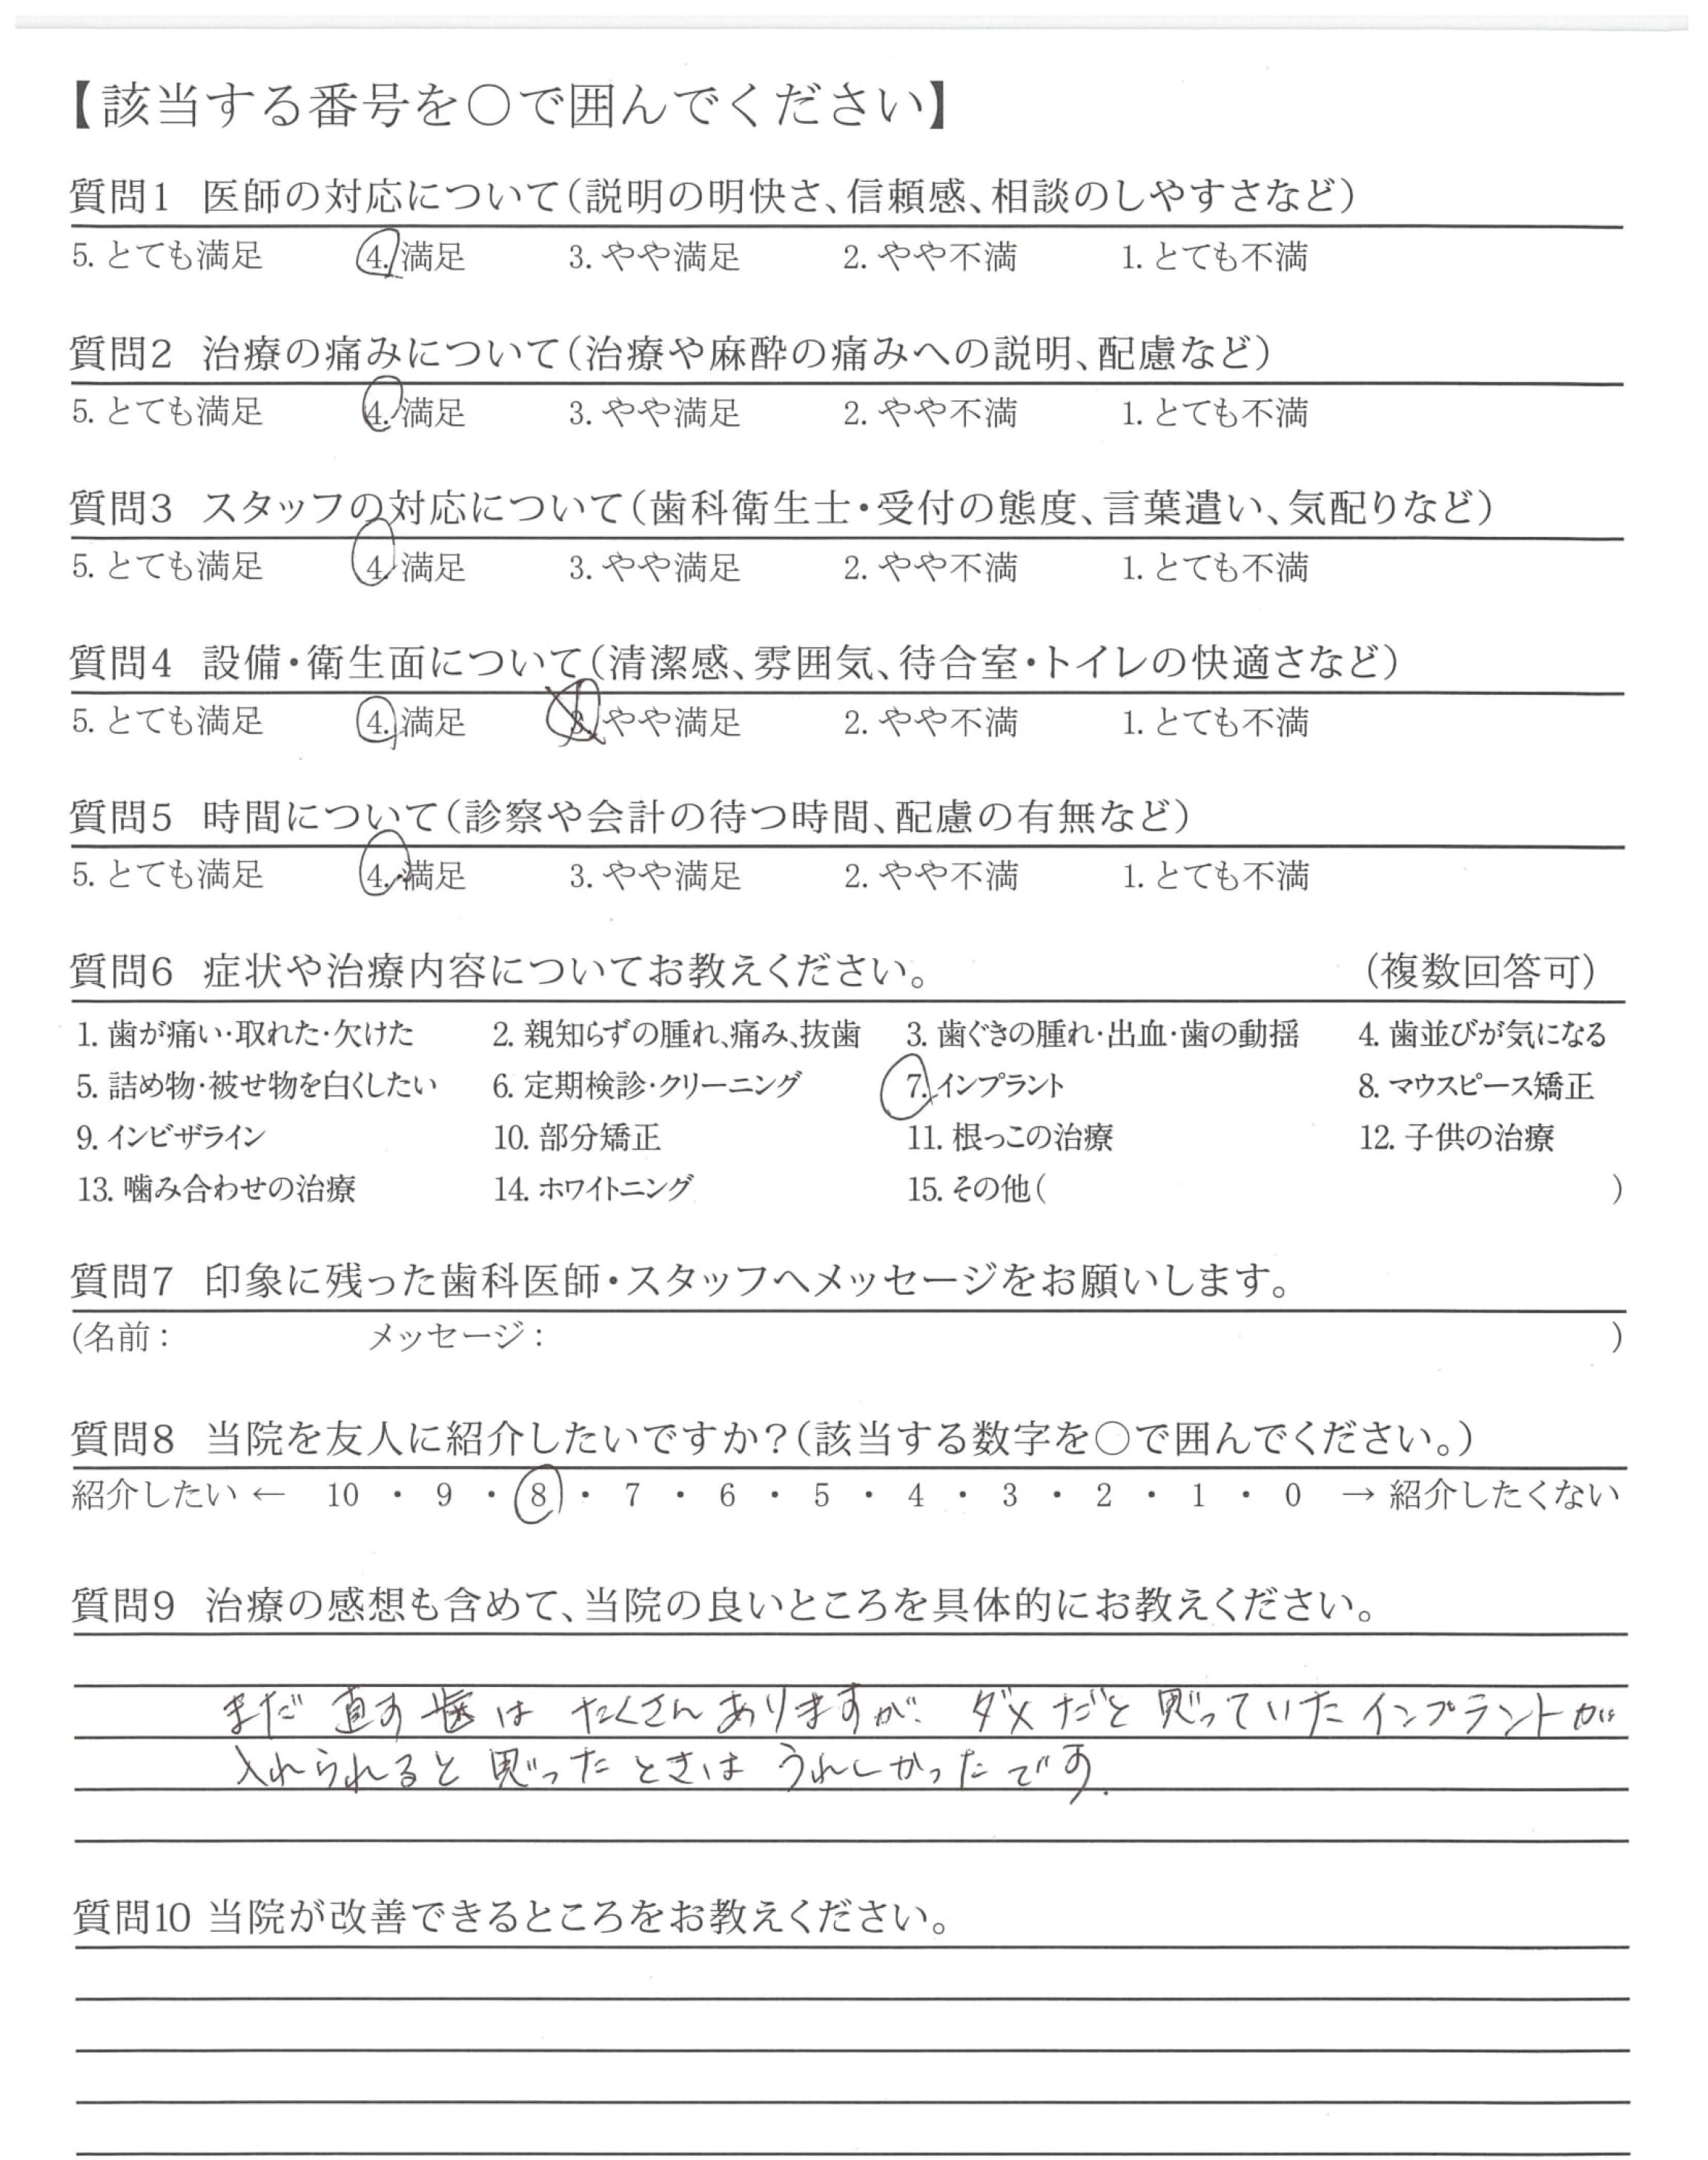 【該当する番号を○で囲んでください】
質問1 医師の対応について(説明の明快さ、信頼感、相談のしやすさなど)
5. とても満足 4. 満足 3. やや満足 2. やや不満 1. とても不満
質問2 治療の痛みについて(治療や麻酔の痛みへの説明、配慮など)
5. とても満足 4. 満足 3. やや満足 2. やや不満 1. とても不満
質問3 スタッフの対応について(歯科衛生士・受付の態度、言葉遣い、気配りなど)
5. とても満足 4. 満足 3. やや満足 2. やや不満 1. とても不満
質問4 設備・衛生面について(清潔感、雰囲気、待合室・トイレの快適さなど)
5. とても満足 4. 満足 3. やや満足 2. やや不満 1. とても不満
質問5 時間について(診察や会計の待つ時間、配慮の有無など)
5. とても満足 4. 満足 3. やや満足 2. やや不満 1. とても不満
質問6 症状や治療内容についてお教えください。 (複数回答可)
1. 歯が痛い・取れた・欠けた 2. 親知らずの腫れ、痛み、抜歯 3. 歯ぐきの腫れ・出血・歯の動揺 4. 歯並びが気になる
5. 詰め物・被せ物を白くしたい 6. 定期検診・クリーニング 7. インプラント 8. マウスピース矯正
9. インビザライン 10. 部分矯正 11. 根っこの治療 12. 子供の治療
13. 噛み合わせの治療 14. ホワイトニング 15. その他( )
質問7 印象に残った歯科医師・スタッフへメッセージをお願いします。
(名前： メッセージ： )
質問8 当院を友人に紹介したいですか？(該当する数字を○で囲んでください。)
紹介したい ← 10 ・ 9 ・ 8 ・ 7 ・ 6 ・ 5 ・ 4 ・ 3 ・ 2 ・ 1 ・ 0 → 紹介したくない
質問9 治療の感想も含めて、当院の良いところを具体的にお教えください。
まだ 直す 歯は たくさん ありますが、 ダメだと 思っていた インプラントが
入れられると 思ったときは うれしかったです.
質問10 当院が改善できるところをお教えください。